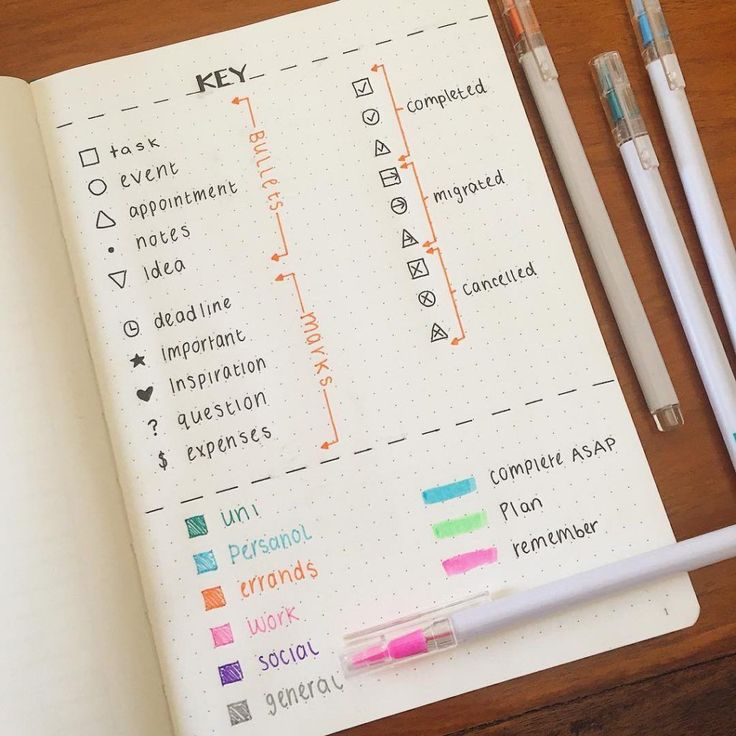 KEY
task
event
appointment
notes
Idea
Bullets
deadline
Important
Inspiration
? question
$ expenses
marks
completed
migrated
cancelled
uni
Persanol
errands
work
social
general
complete ASAP
Plan
remember
1